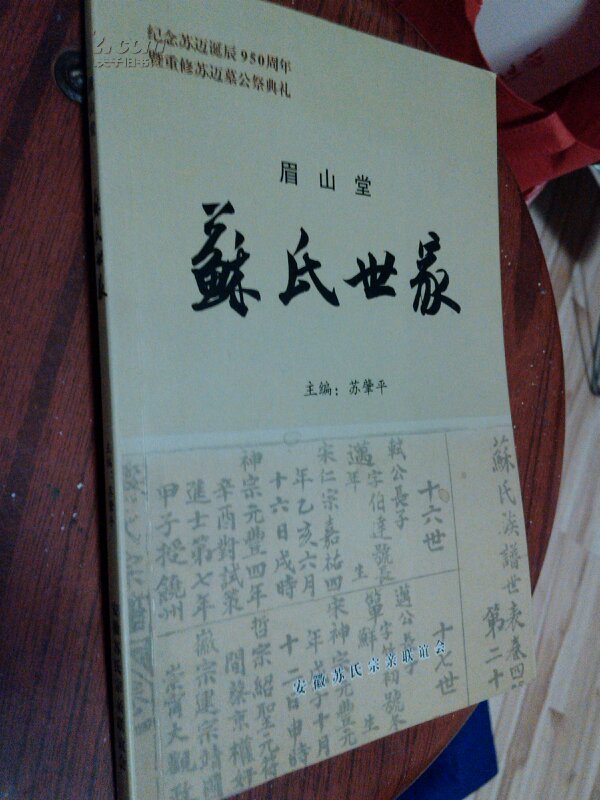 纪念苏迈诞辰950周年
暨重修苏迈墓公祭典礼
眉山堂
蘇氏世家
主编：苏肇平
蘇氏族譜世表卷四
第二十
十六世
軾公長子
邁字伯達號
年生
宋仁宗嘉祐四
年乙亥六月
十六日戌時
神宗元豐四年
辛酉對試策
進士第七年
甲子授饒州
十七世
邁公長子
簞字
鮮生
宋神宗元豐元
年
十月
十二日申時
哲宗紹聖元符
間蔡京權好
徽宗建宗靖國
崇甯大觀政
安徽苏氏宗亲联谊会